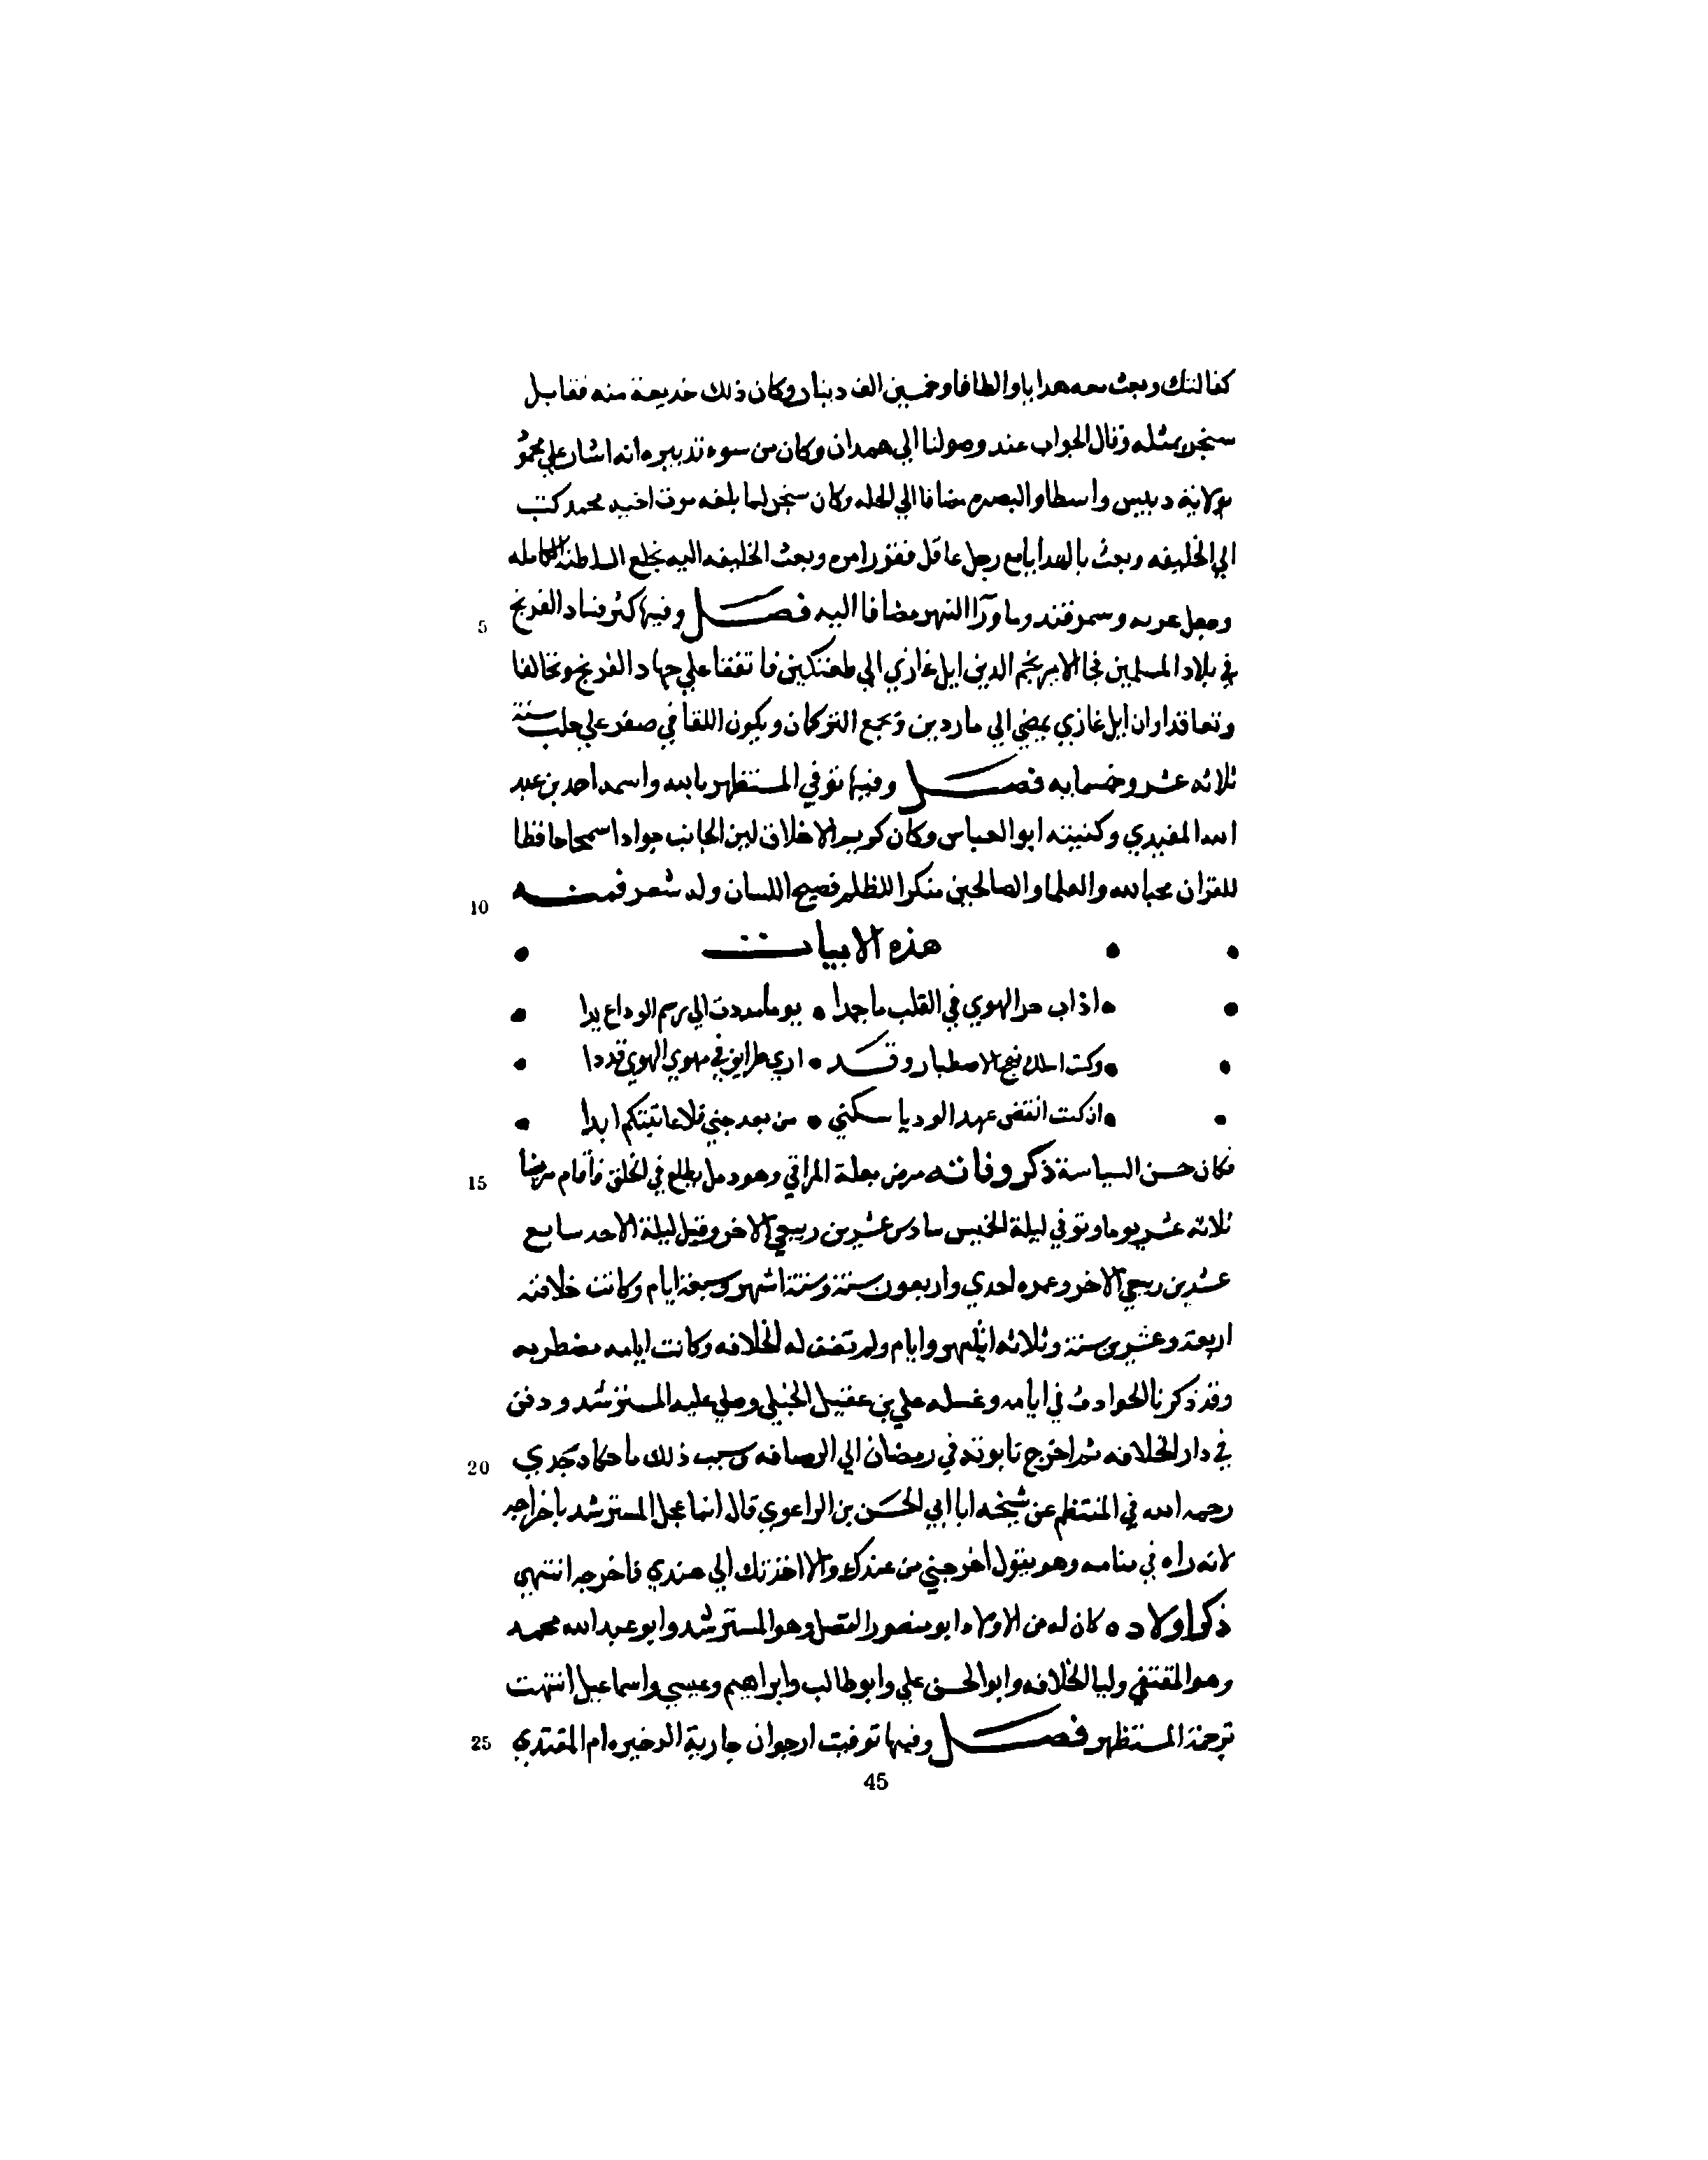 كفالتك وبعث معه هدايا والطافا وخمسين الف دينار وكان ذلك خديعة منه فقابل
سنجر بمثله وقال الجواب عند وصولنا الي همدان وكان من سوء تدبيره انه اشار علي محمود
بولاية دبيس واسطا والبصره مضافا الي الحله وكان سنجر لما بلغه موت اخيه محمد كتب
الي الخليفه وبعث بالهدايا مع رجل عاقل فقرر امره وبعث الخليفه اليه بخلع السلطنة الكامله
وجعل عربه وسمرقند وما ورآ النهر مضافا اليه فصل وفيها كثر فساد الفرنج
5
في بلاد المسلمين فجا الامير نجم الدين ايل غازي الي طغتكين فاتفقا علي جهاد الفرنج وتحالفا
وتعاقدا وان ايل غازي يمضي الي ماردين ويجمع التركمان ويكون اللقا في صفر علي حلب سنة
ثلاثه عشر وخمسمايه فصل وفيها توفي المستظهر بالله واسمه احمد بن عبد
الله المقتدي وكنيته ابو العباس وكان كريم الاخلاق لين الجانب جوادا سمحا حافظا
للقران محبا لله والعلما والصالحين منكرا للظلم فصيح اللسان وله شعر فمنه
10
هذه الابيات
اذاب حر الهوي في القلب ما جمدا • يوما مددت الي رسم الوداع يدا
وكنت اسلك نهج الاصطبار وقد • اري طرايق في مهوي الهوي قددا
ان كنت انقض عهد الود يا سكني • من بعد حبي فلا عاتبتكم ابدا
فكان حسن السياسة ذكر وفاته مرض بعلة المراقي وهو دمل يطلع في الحلق فأقام مريضا
15
ثلاثه عشر يوما وتوفي ليلة الخميس سادس عشر من ربيع الاخر وقيل ليلة الاحد سابع
عشر من ربيع الاخر وعمره احدي واربعون سنة وستة اشهر وسبعة ايام وكانت خلافته
اربعة وعشرين سنة وثلاثه اشهر وايام ولم تصف له الخلافه وكانت ايامه مضطربه
وقد ذكرنا الحوادث في ايامه وغسله علي بن عقيل الحنبلي وصلي عليه المسترشد ودفن
في دار الخلافه ثم اخرج تابوته في رمضان الي الرصافه وسبب ذلك ما حكاه جدي
20
رحمه الله في المنتظم عن شيخه ابا ابي الحسن بن الزاغوي قال انما عجل المسترشد باخراجه
لانه راه في منامه وهو يقول اخرجني من عندك والا اخذتك الي عندي فاخرجه انتهي
ذكر اولاده كان له من الاولاد ابو منصور الفضل وهو المسترشد وابو عبد الله محمد
وهو المقتفي وليا الخلافه وابو الحسن علي وابو طالب وابراهيم وعيسي واسماعيل انتهت
ترجمة المستظهر فصل وفيها توفيت ارجوان جارية الدخيره ام المقتدي
25
45